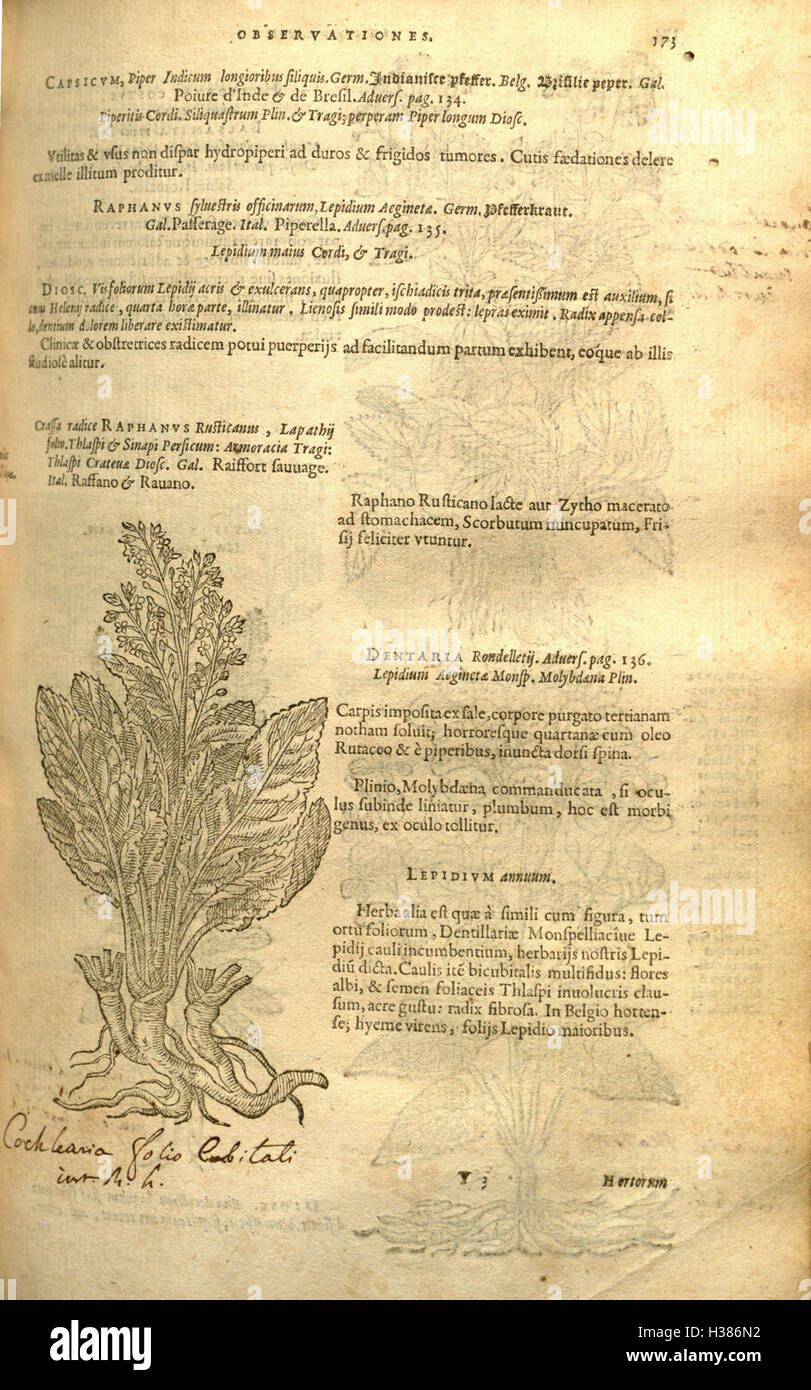 OBSERVATIONES.
173
CAPSICVM, Piper Indicum longioribus siliquis. Germ. Indianisce pfeffer. Belg. Brisilie peper. Gal.
Poiure d'Inde & de Bresil. Aduers. pag. 134.
Piperitis Cordi. Siliquastrum Plin. & Tragi; perperam Piper longum Diosc.
Vtilitas & vsus non dispar hydropiperi ad duros & frigidos tumores. Cutis fœdationes delere
ex melle illitum proditur.
RAPHANVS syluestris officinarum, Lepidium Aeginetæ. Germ. Pfefferkraut.
Gal. Passerage. Ital. Piperella. Aduers. pag. 135.
Lepidium maius Cordi, & Tragi.
DIOSC. Vis foliorum Lepidij acris & exulcerans, quapropter, ischiadicis trita, præsentißimum est auxilium, si
cum Helenij radice, quarta horæ parte, illinatur. Lienosis simili modo prodest: lepras eximit. Radix appensa col-
lo, dentium dolorem liberare existimatur.
Clinicæ & obstretrices radicem potui puerperijs ad facilitandum partum exhibent, eóque ab illis
studiosè alitur.
Crassa radice RAPHANVS Rusticanus, Lapathij
folio. Thlaspi & Sinapi Persicum: Armoracia Tragi:
Thlaspi Crateuæ Diosc. Gal. Raiffort sauuage.
Ital. Raffano & Rauano.
Raphano Rusticano lacte aut Zytho macerato
ad stomachacem, Scorbutum nuncupatum, Fri-
sij feliciter vtuntur.
DENTARIA Rondelletij. Aduers. pag. 136.
Lepidium Aeginetæ Monsp. Molybdæna Plin.
Carpis imposita ex sale, corpore purgato tertianam
notham soluit; horroresque quartanæ cum oleo
Rutaceo & è piperibus, inuncta dorsi spina.
Plinio, Molybdæna commanducata, si ocu-
lus subinde liniatur, plumbum, hoc est morbi
genus, ex oculo tollitur.
LEPIDIVM annuum.
Herba alia est quæ à simili cum figura, tum
ortu foliorum, Dentillariæ Monspelliacæ siue Le-
pidij cauli incumbentium, herbarijs nostris Lepi-
diũ dicta. Caulis itẽ bicubitalis multifidus: flores
albi, & semen foliaceis Thlaspi inuolucris clau-
sum, acre gustu: radix fibrosa. In Belgio horten-
se; hyeme virens, folijs Lepidio maioribus.
Cochlearia folio Cubitali
inst. R. h.
Y 3
Hortorum
alamy stock photo
H386N2
www.alamy.com